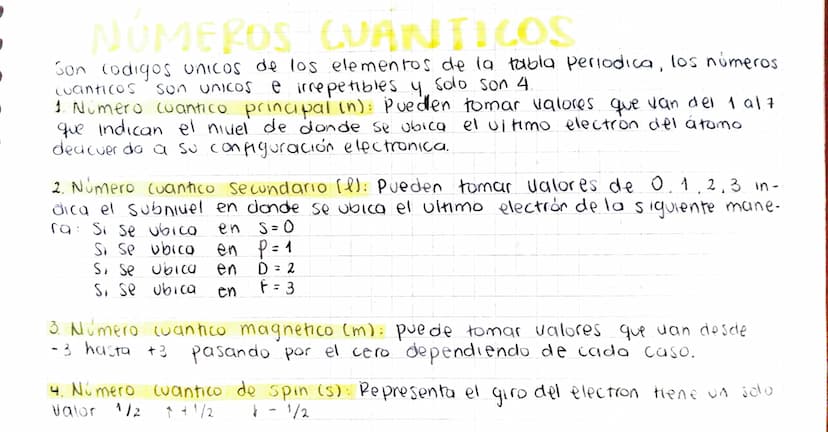 NÚMEROS CUANTICOS
Son codigos unicos de los elementos de la tabla periodica, los números
cuanticos son unicos e irrepetibles y solo son 4.
1. Número cuantico principal (n): Pueden tomar valores que van del 1 al 7
que indican el nivel de donde se ubica el ultimo electron del átomo
deacuerdo a su configuración electronica.
2. Número cuantico secundario (l): Pueden tomar valores de 0, 1, 2, 3 in-
dica el subnivel en donde se ubica el ultimo electrón de la siguiente mane-
ra: Si se ubica en s=0
Si se ubica en p=1
Si se ubica en D=2
Si se ubica en F=3
3. Número cuantico magnetico (m): puede tomar valores que van desde
-3 hasta +3 pasando por el cero dependiendo de cada caso.
4. Número cuantico de spin (s): Representa el giro del electron tiene un solo
valor 1/2 ↑+1/2 ↓-1/2